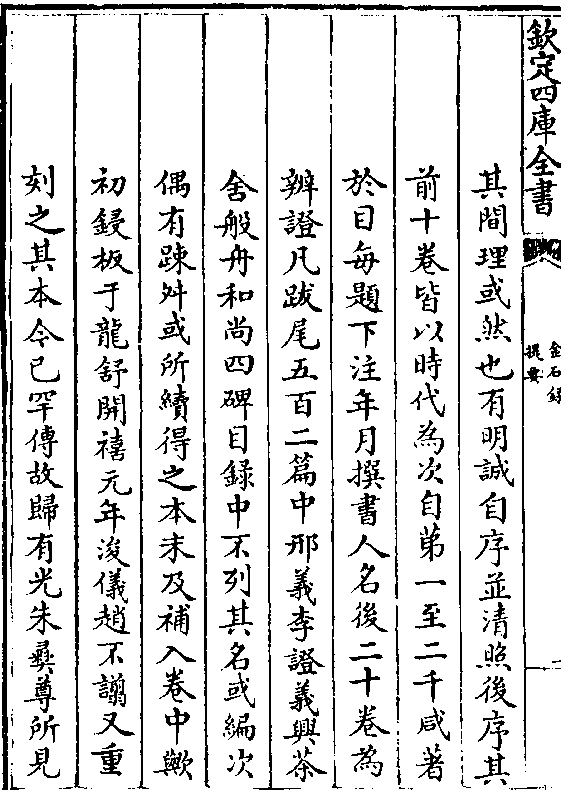 欽定四庫全書
金石錄
提要
其間理或然也有明誠自序並清照後序其
前十卷皆以時代為次自第一至二千咸著
於目每題下注年月撰書人名後二十卷為
辨證凡跋尾五百二篇中邢義李證義興茶
舍般舟和尚四碑目錄中不列其名或編次
偶有疎舛或所續得之本未及補入卷中歟
初鋟板于龍舒開禧元年浚儀趙不譾又重
刻之其本今已罕傳故歸有光朱彝尊所見
一